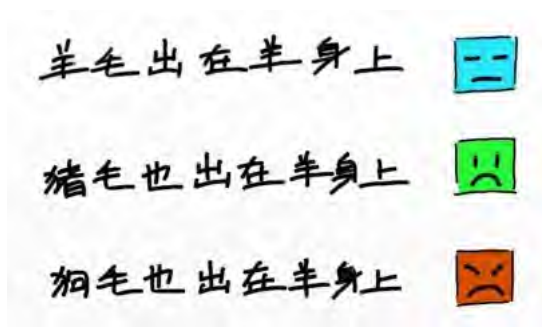 羊毛出在羊身上
猪毛也出在羊身上
狗毛也出在羊身上